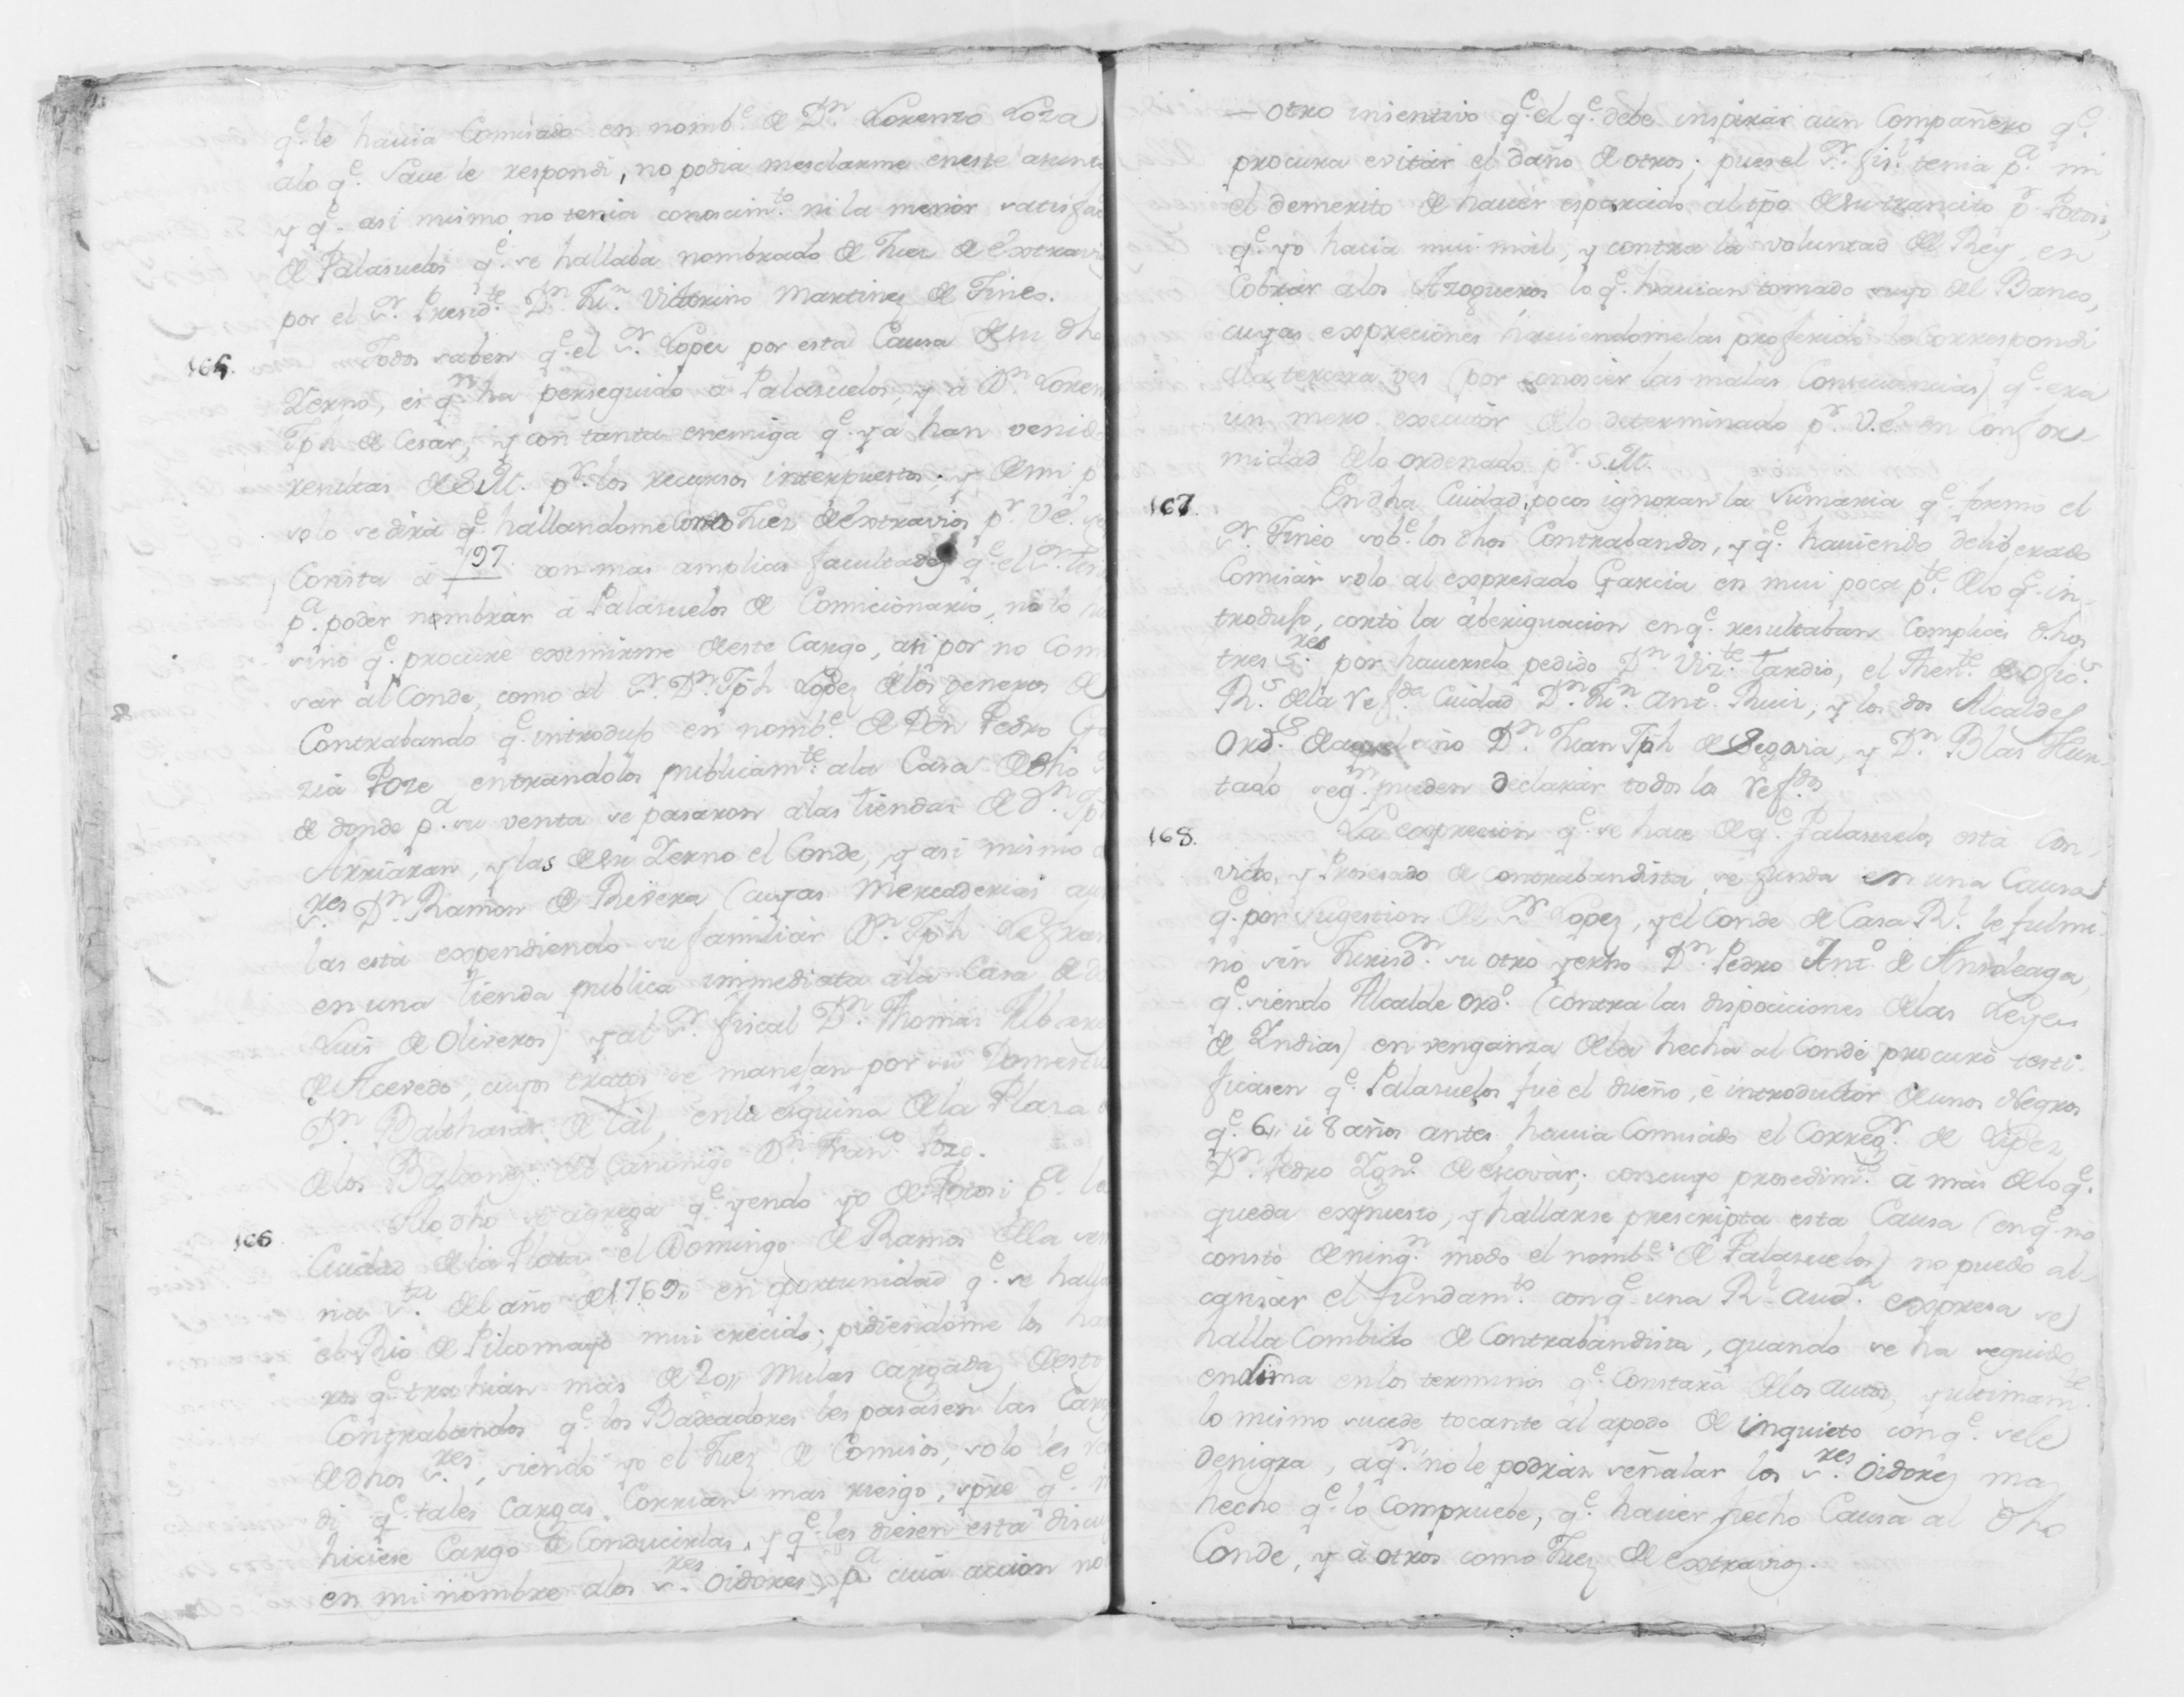 q.e le havia Comisado en nomb.e de D.n Lorenzo Loza
alo q.e Save le respondi, no podia mesclarme eneste asunto
y q.e asi mismo no tenia conosim.to ni la menor satisfac
de Palasuelos q.e se hallaba nombrado de Juez de extravi
por el S.r Presid.te D.n Ju.n Victorino Martinez de Tineo.
165. Todos saben q.e el S.r Lopez por esta Causa de su dho
Yerno, es q.n ha perseguido á Palasuelos, y á D.n Loren
Jph de Cesar, y con tanta enemiga q.e ya han venid
resultas de S.M. p.r los recursos interpuestos; y de mi p
solo se dirá q.e hallandome Como Juez de extravios p.r V.e
Consta á f 97. con mas amplias facultades q.e el S.r
p.a poder nombrar á Palasuelos de Comicionario, no lo
sino q.e procure exsimirme deeste Cargo, asi por no Com
sar al Conde, como al S.r D.n Jph Lopez delos generos de
Contrabando q.e introdujo en nomb.e de Don Pedro G
zia Poze entrandolos publicam.te ala Casa de dho
de donde p.a su venta se pasaron alas tiendas de D.n Jph
Arriaran, y las de su Yerno el Conde, y asi mismo
S.res D.n Ramon de Rivera (cuyas Mercaderias aun
las está expendiendo su familiar D.n Jph Lefran
en una tienda publica immediata ala Casa de
Luis de Oliveros) y al S.r fiscal D.n Thomas Albare
de Acevedo, cuyos tratos se manejan por su Domesti
D.n Balthasar de tal, enla esquina dela Plasa
delos Balcones del Canonigo D.n Fran.co Pozo.
166 Alo dho se agrega q.e yendo yo de Potosi p.a la
Ciudad dela Plata el Domingo de Ramos della sem
na S.ta del año de 1769,, en oportunidad q.e se halla
el Rio de Pilcomayo mui crecido; pidiendome los
ros q.e trahian más de 20,, Mulas cargadas deesto
Contrabandos q.e los Badeadores les pasasen las Carg
dedhos S.res, siendo yo el Juez de Comisos, solo les
di q.e tales cargas Corrian mas riesgo, spre q.e
hiciese Cargo de Conducirlas, y q.e les diesen esta discu
en mi nombre alos S.res Oidores, p.a cuia accion no
— otro insentivo q.e el q.e debe inspirar aun Compañero q.e
procura evitar el daño de otros; pues el S.r fis.l tenia p.a mi
el demerito de haver esparcido al tpo de su trancito p.r Potosi,
q.e yo hacia mui mál, y contra la voluntad del Rey, en
Cobrar alos Azogueros lo q.e havian tomado suyo del Banco,
cuyas expreciones haviendomelas proferido le Correspondi
ala tercera ves (por conoser las malas Consecuencias) q.e era
un mero executor delo determinado p.r V.e en Confor
midad delo ordenado p.r S.M.
167. En dha Ciudad, pocos ignoran la Sumaria q.e formó el
S.r Tineo sob.e los dhos Contrabandos, y q.e haviendo deliberado
Comisar solo al expresado Garcia en mui poca p.te delo q.e in-
trodujo, cortó la aberiguacion en q.e resultaban Complices dhos
tres S.res por haverselo pedido D.n Viz.te Tardio, el Then.te de ofic.s
R.s dela Ref.da Ciudad D.n Ju.n Ant.o Ruiz, y los dos Alcaldes
Ord.s de aquel año D.n Juan Jph de Segovia, y D.n Blas Hur-
tado seg.n pueden declarar todos los Ref.dos
168. La exprecion q.e se hace de q.e Palasuelos está Con-
victo, y Prosesado de contrabandista se funda en una Causa
q.e por Sugestion del S.r Lopez, y el Conde de Casa R.l le fulmi
nó sin Jurisd.n su otro yerno D.n Pedro Ant.o de Ansoleaga,
q.e siendo Alcalde ord.o (contra las disposiciones delas Leyes
de Yndias) en venganza dela hecha al Conde procuró testi
ficasen q.e Palasuelos fue el dueño, é introductor de unos Negros
q.e 6,, ú 8 años antes havia Comisado el Correg.r de Lipez
D.n Pedro Ygn.o de Escovar; con cuyo prosedim.to á más delo q.e
queda expuesto, y hallarse prescripta esta Causa (en q.e no
constó de ning.n modo el nomb.e de Palasuelos) no puedo al-
cansar el fundam.to con q.e una R.l Aud.a expresa se
halla Combicto de Contrabandista, quando se ha seguido
en Lima enlos terminos q.e Constará delos autos, y ultimam.te
lo mismo sucede tocante al apodo de inquieto con q.e sele
denigra, aq.n no le podrán señalar los S.res Oidores mas
hecho q.e lo Compruebe, q.e haver hecho Causa al dho
Conde, y á otros como Juez de extravios.